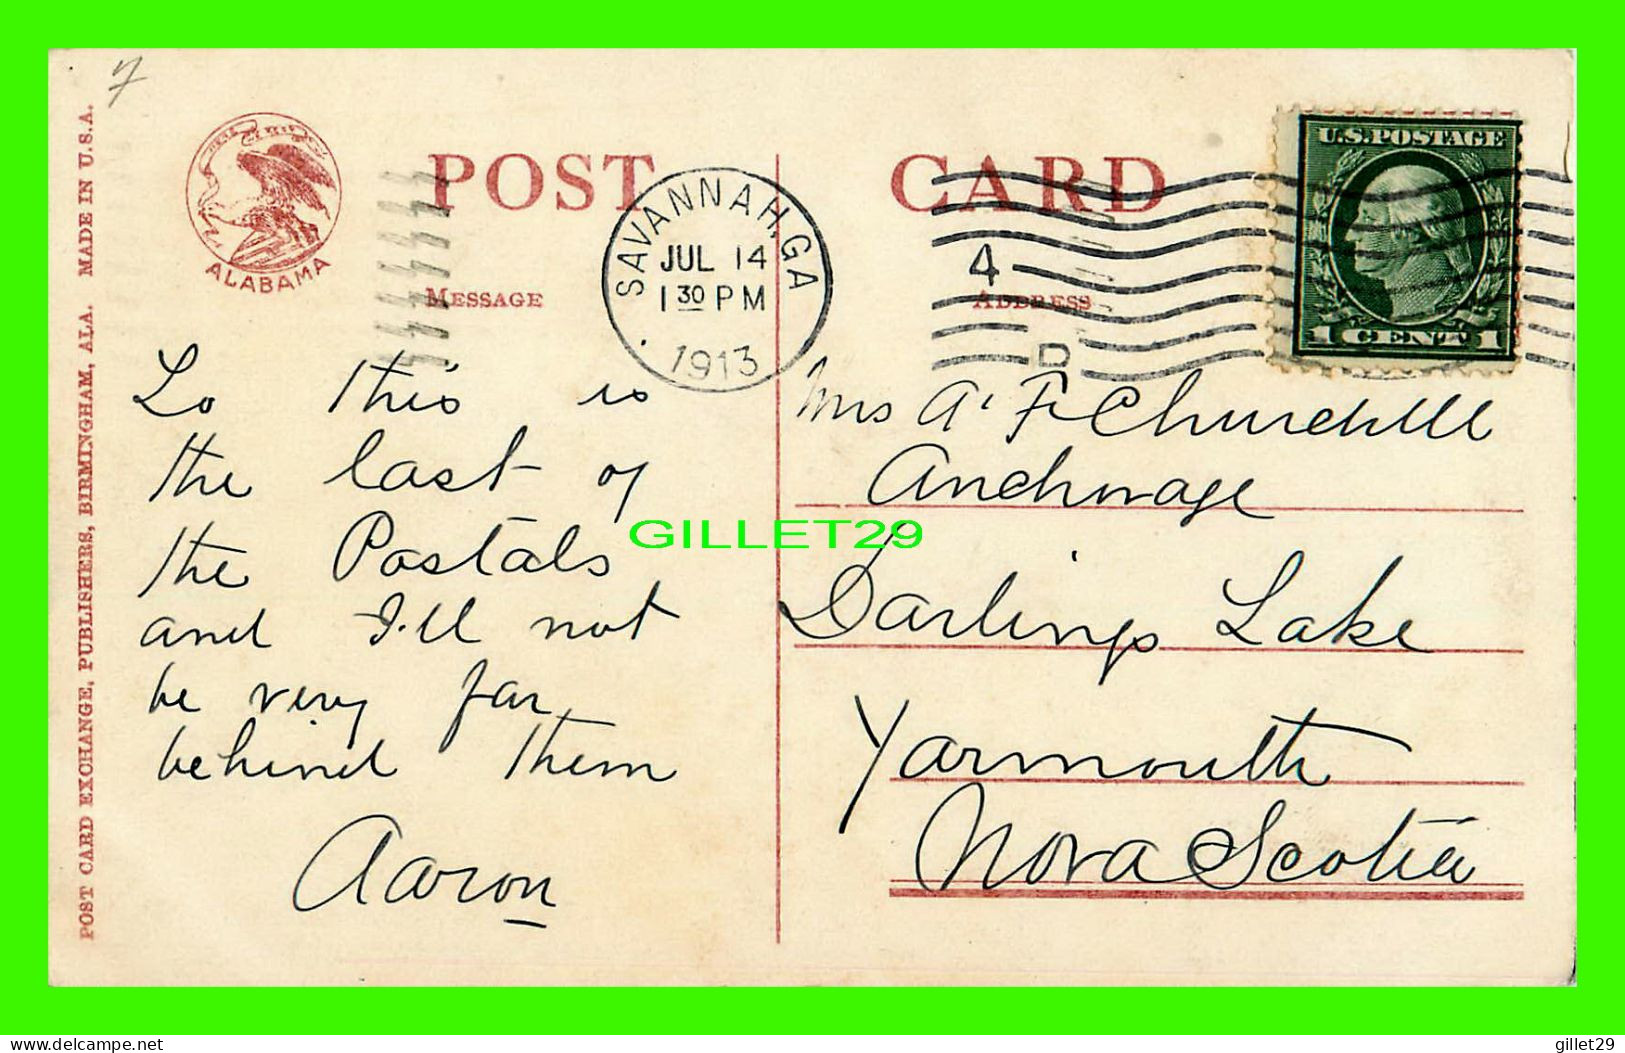 7
POST CARD EXCHANGE, PUBLISHERS, BIRMINGHAM, ALA. MADE IN U.S.A.
ALABAMA
POST CARD
MESSAGE
ADDRESS
SAVANNAH, GA
JUL 14
1 30 PM
1913
4
D
U.S. POSTAGE
1 CENT 1
Lo this is
the last of
the Postals
and I'll not
be very far
behind them
Aaron
Mrs A. F Churchill
Anchorage
Darlings Lake
Yarmouth
Nova Scotia
GILLET29
Delcampe.net
gillet29